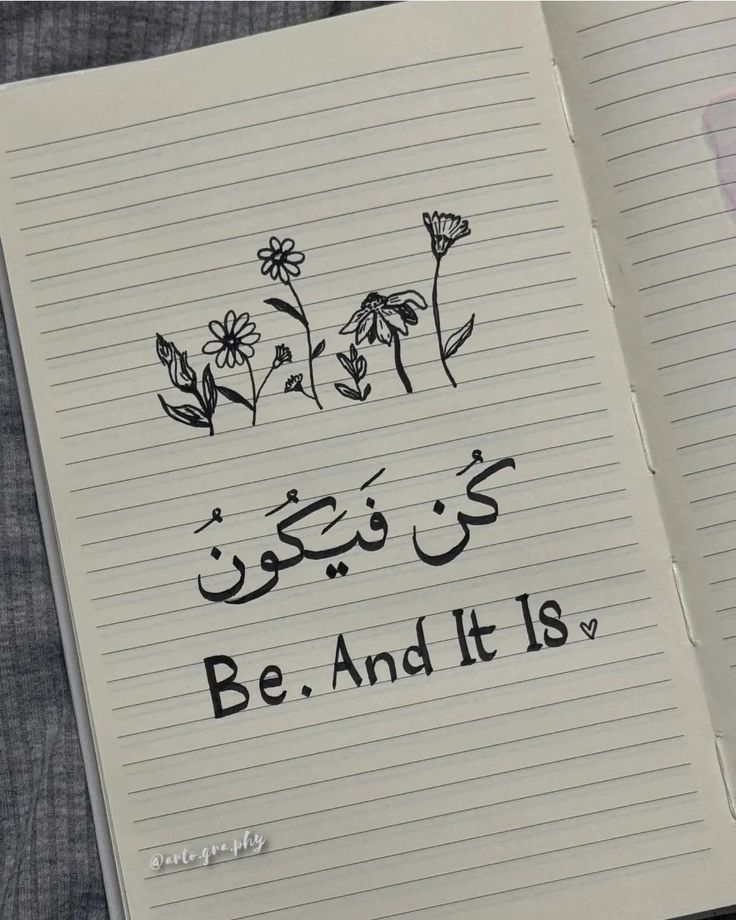 كُن فَيَكُونُ
Be. And It Is
@arto.gra.phy